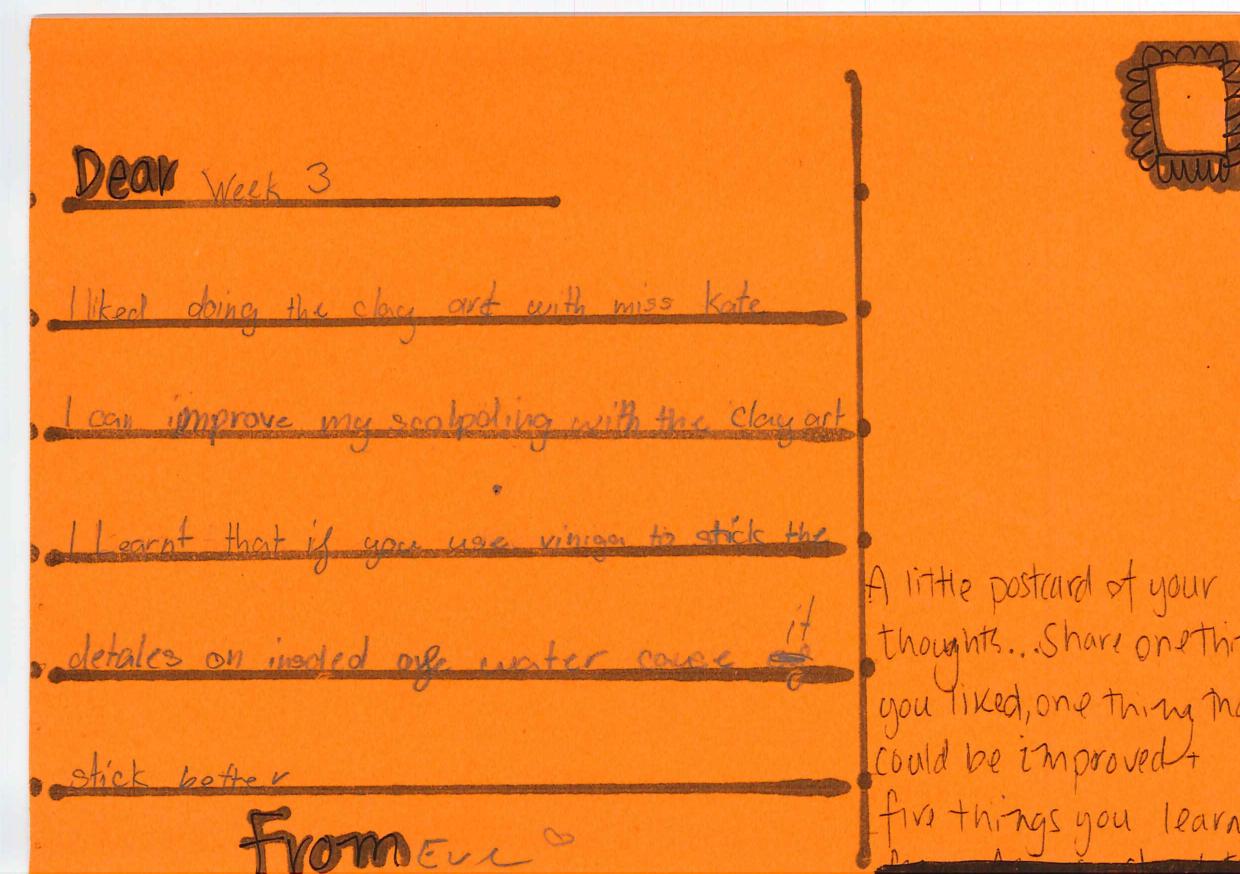 Dear Week 3
I liked doing the clay art with miss kate
I can improve my scolpoling with the clay art
I Learnt that if you use viniga to stick the
detales on insded ofe water cause it
stick better
From Eve
A little postcard of your
thoughts... Share one thi
you liked, one thing tha
could be improved +
five things you learn